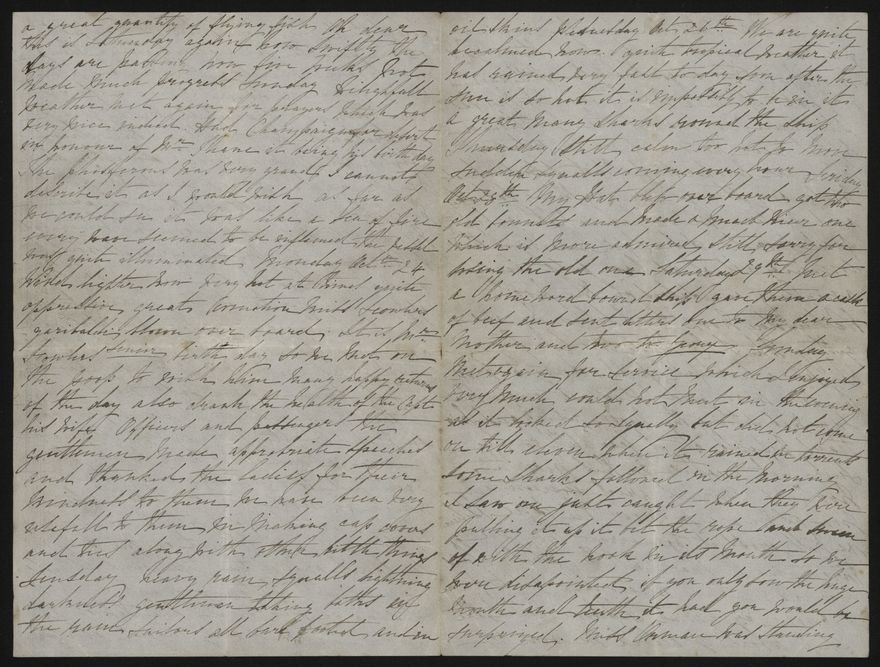 a great quantity of flying fish Oh dear
this is Saturday again how swiftly the
days are passing now five weeks Not
made much progress Sunday delightfull
weather met again for prayers which was
very nice indeed Had Champaign for desert
in honour of Mr Lane it being his birth day
The phosforous was very grand I cannot
describe it as I would wish as far as
we could see it was like a sea of fire
every wave seemed to be enflamed The vessel
was quite illuminated Monday Octr 24
Wind lighter now very hot at times quite
oppressive great comotion Miss Scowlers
garibaldi blown over board it is Mr
senior birth day so we met on
the poop to wish him many happy returns
of the day also drank the health of the Capt
his wife Officers and passengers The
gentlemen made appropriate speeches
and thanked the ladies for their
kindness to them we have been very
usefull to them in making cap covers
and ties along with other little things
Tuesday heavy rain squalls lightning
darkness gentlemen taking baths in
the rain sailors all bare footed and in
oil skins Wednesday Oct 26th We are quite
becalmed now quite tropical weather it
has rained very fast to day soon after the
sun is so hot it is impossible to be in it
a great many sharks round the ship
Thursday Still calm too hot to move
sudden squalls coming every hour Friday
Oct 28th My hat blew over board got two
old bonnets and made a much nicer one
which is more admired still sorry for
losing the old one Saturday 29th Met
a homeward bound ship gave them a cask
of beef and sent letters one to my dear
Mother and two to George Sunday
Met again for service which I enjoyed
very much could not meet in the evening
as it looked so squally but did not come
on till eleven when it rained in torrents
some sharks followed in the morning
I saw one just caught when they were
pulling it up it bit the rope and swam
of with the hook in its mouth so we
were disapointed if you only saw the huge
mouth and teeth it had you would be
surprized. Miss was standing